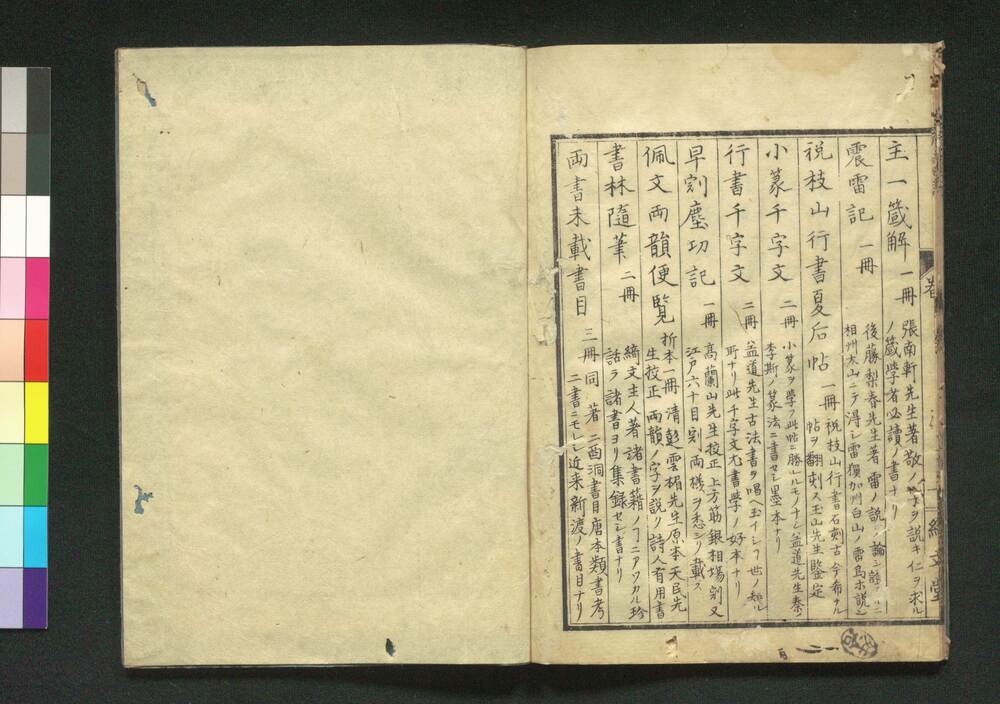 主一箴解 一冊 張南軒先生著敬ノ字ヲ説キ仁ヲ求ル
ノ箴学者必讀ノ書ナリ
震雷記 一冊 後藤梨春先生著雷ノ説ヲ論シ
相州大山ニテ得シ雷獣加州白山ノ雷鳥ホ説シ
祝枝山行書夏后帖 一冊 祝枝山行書石刻古今希ナル
帖ヲ翻刻ス玉山先生鑒定
小篆千字文 二冊 小篆ヲ學フ此帖ニ勝レルモノナシ益道先生秦ノ
李斯ノ篆法ニ書セシ墨本ナリ
行書千字文 二冊 益道先生古法書ヲ唱ヘ玉イシフ世ノ知ル
所ナリ此千字文尤書學ノ好本ナリ
早割塵功記 一冊 高蘭山先生校正上方筋銀相場割又
江戸六十目割両様ヲ悉シク載ス
佩文両韻便覧 折本一冊 清彭雲楣先生原本天民先
生校正両韻ノ字ヲ説ク詩人有用書
書林隨筆 二冊 縞文主人著諸書籍ノフニアツカル珍
話ヲ諸書ヨリ集録セシ書ナリ
両書未載書目 三冊 同著 二酉洞書目唐本類書考
二書ニモレシ近来新渡ノ書目ナリ